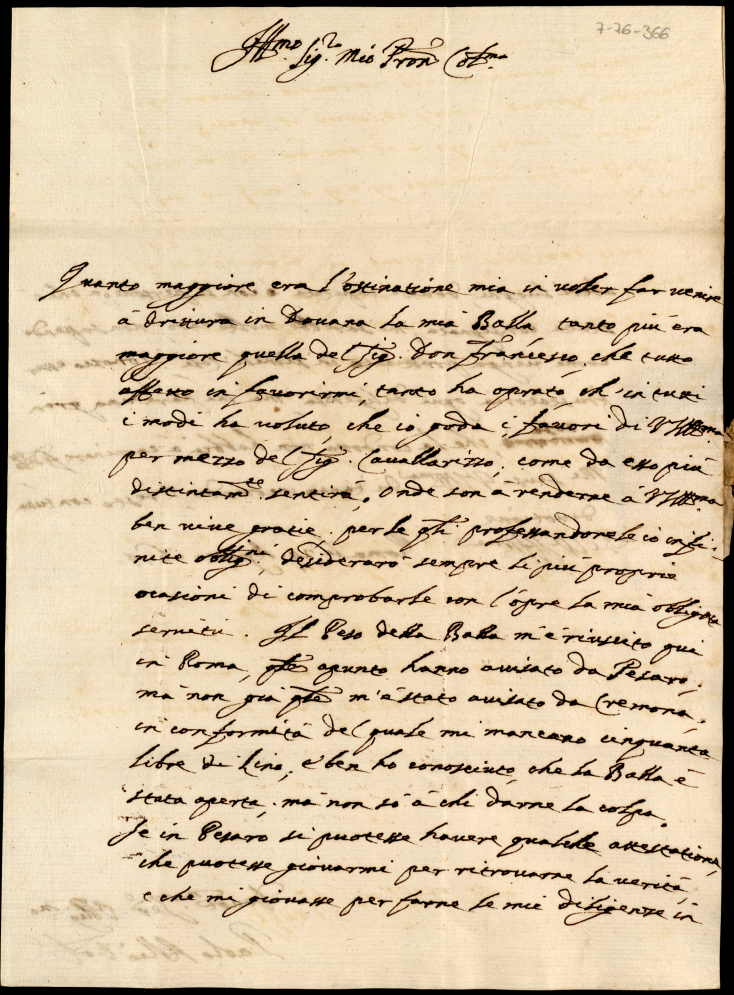 7-76-366
Ill.mo Sig.re Mio Pron Col.mo
Quanto maggiore era l'ostinatione mia in voler far venire
à drittura in Douana la mia Balla, tanto più era
maggiore quella del Sig. Don Francesco, che tutto
affetto in favorirmi, tanto ha oprato, ch'in tutti
i modi ha voluto, che io goda i favori di V.S. Ill.ma
per mezzo del Sig. Cavallarizzo, come da esso più
distintam.te sentirà, onde son à renderne à V.S. Ill.ma
ben vive gratie. per le q.li professandonele io infi-
nite oblig.ni, desiderarò sempre le più proprie
ocasioni di comprobarle con l'opre la mia obligata
servitù. Il Peso della Balla m'è riuscito qui
in Roma, q.le apunto hanno avisato da Pesaro,
mà non già q.le m'è stato avisato da Cremona,
in conformità del quale mi mancano cinquanta
libre di Lino, e ben ho conosciuto, che la Balla è
stata aperta, mà non sò à chi darne la colpa.
Se in Pesaro si puotesse havere qualche attestatione,
che puotesse giovarmi per ritrovarne la verità,
e che mi giovasse per farne le mie diligenze in